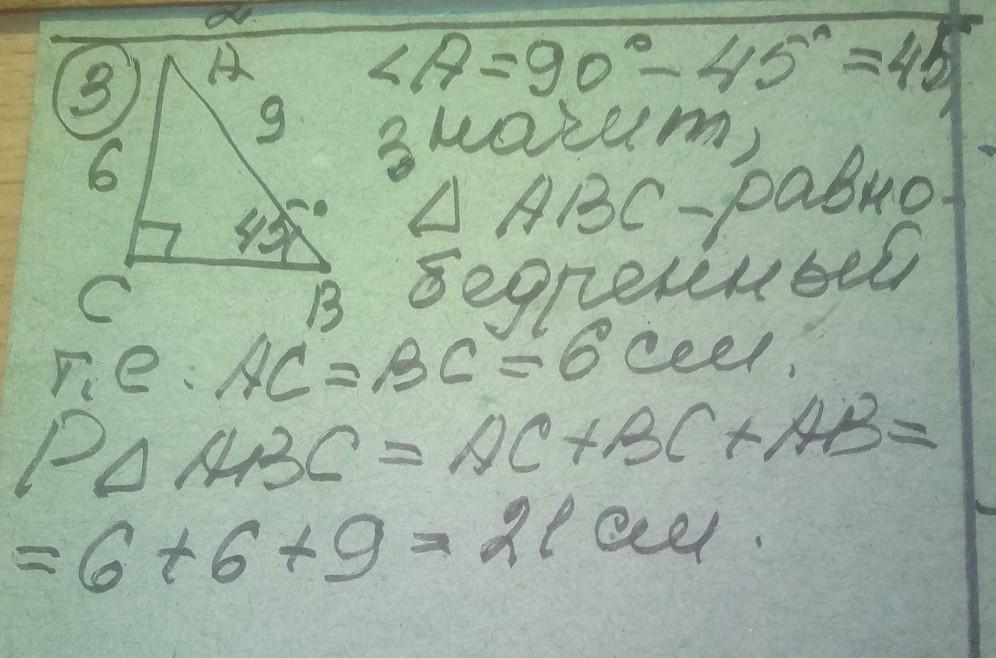 3
A
9
6
45°
C
B
∠A = 90° - 45° = 45,
значит,
Δ ABC - равно-
бедренный
т.е. AC = BC = 6 см.
PΔ ABC = AC + BC + AB =
= 6 + 6 + 9 = 21 см.